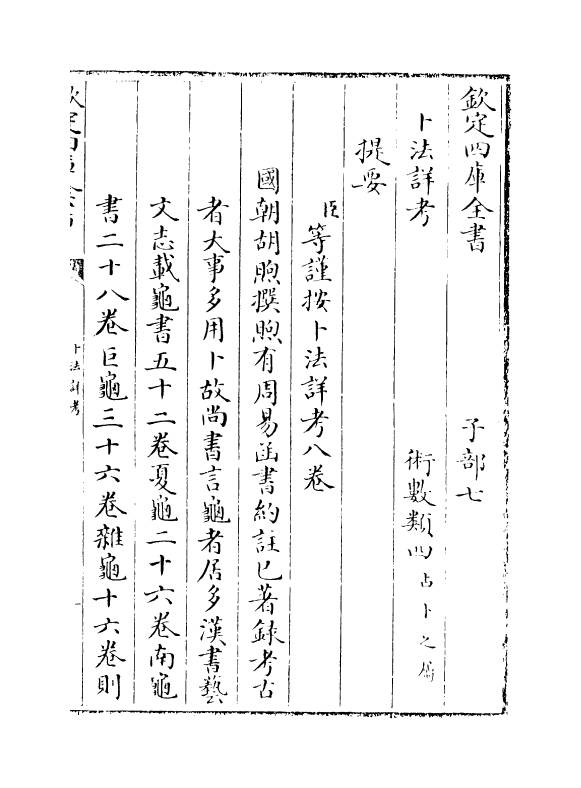 欽定四庫全書
子部七
卜法詳考
術數類四占卜之屬
提要
臣等謹按卜法詳考八卷
國朝胡煦撰煦有周易函書約註已著録考古
者大事多用卜故尚書言龜者居多漢書藝
文志載龜書五十二卷夏龜二十六卷南龜
書二十八卷巨龜三十六卷雜龜十六卷則
欽定四庫全書
卜法詳考